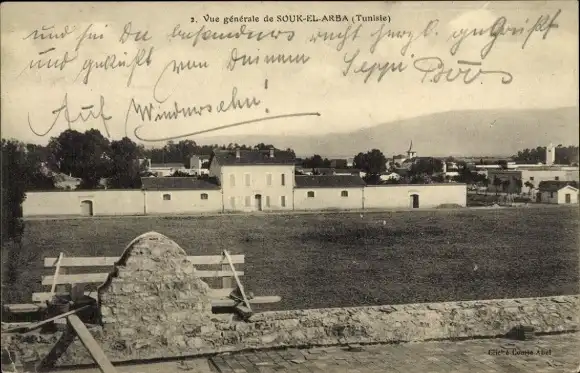 2. Vue générale de SOUK-EL-ARBA (Tunisie)
und sei Du besonders recht herzl. gegrüßt
und geküßt von Deinem Sepp
Auf Wiedersehn!
Cliché Combe Abel